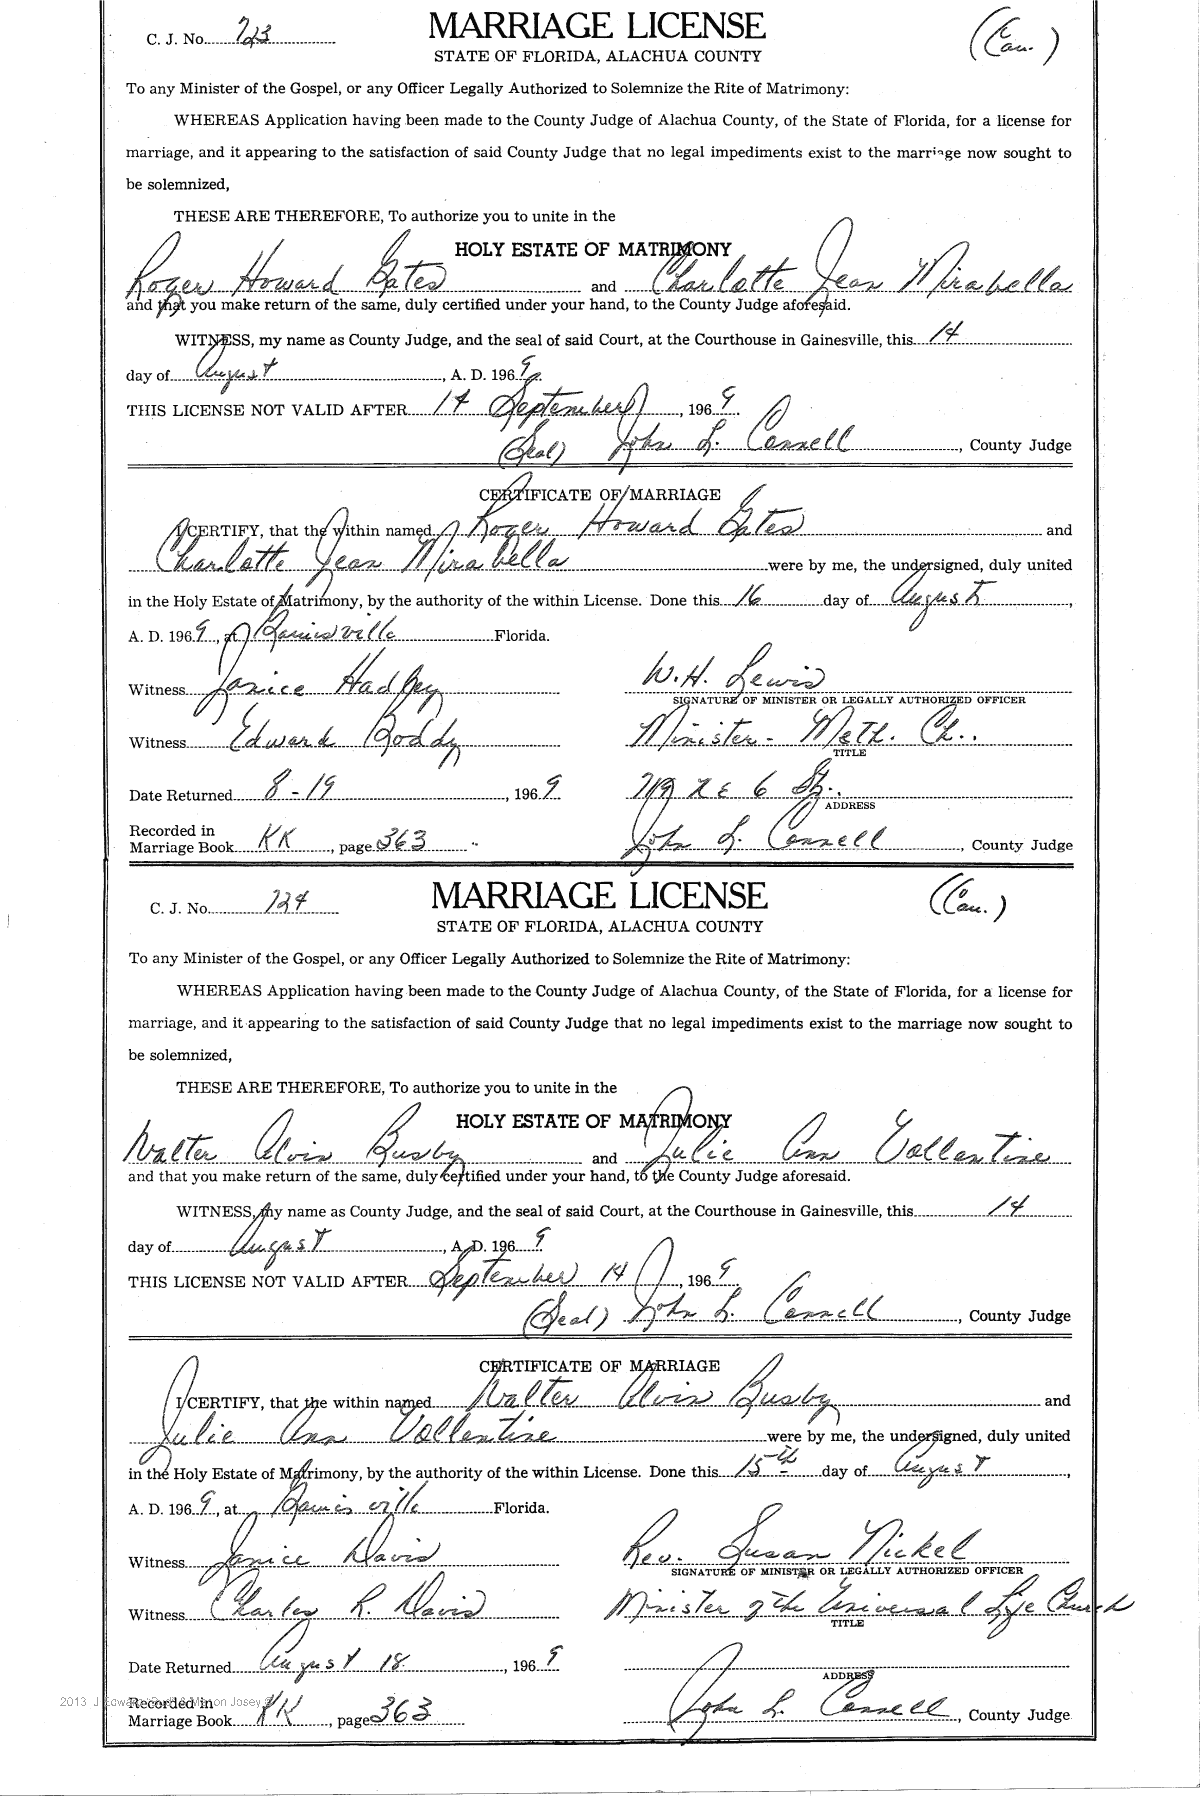 C. J. No. 723
MARRIAGE LICENSE
(Cau.)
STATE OF FLORIDA, ALACHUA COUNTY
To any Minister of the Gospel, or any Officer Legally Authorized to Solemnize the Rite of Matrimony:
WHEREAS Application having been made to the County Judge of Alachua County, of the State of Florida, for a license for
marriage, and it appearing to the satisfaction of said County Judge that no legal impediments exist to the marriage now sought to
be solemnized,
THESE ARE THEREFORE, To authorize you to unite in the
HOLY ESTATE OF MATRIMONY
Roger Howard Gates and Charlotte Jean Mirabella
and that you make return of the same, duly certified under your hand, to the County Judge aforesaid.
WITNESS, my name as County Judge, and the seal of said Court, at the Courthouse in Gainesville, this 14
day of August, A. D. 1969.
THIS LICENSE NOT VALID AFTER 14 September, 1969.
(Seal) John L. Connell, County Judge
CERTIFICATE OF MARRIAGE
I CERTIFY, that the within named Roger Howard Gates and
Charlotte Jean Mirabella were by me, the undersigned, duly united
in the Holy Estate of Matrimony, by the authority of the within License. Done this 16 day of August,
A. D. 1969, at Gainesville Florida.
Witness Janice Hadley W.H. Lewis
SIGNATURE OF MINISTER OR LEGALLY AUTHORIZED OFFICER
Witness Edward Roddy Minister - Meth. Ch..
TITLE
Date Returned 8-19, 1969 719 N E 6 St..
ADDRESS
Recorded in
Marriage Book KK, page 363 John L. Connell, County Judge
C. J. No. 724
MARRIAGE LICENSE
(Cau.)
STATE OF FLORIDA, ALACHUA COUNTY
To any Minister of the Gospel, or any Officer Legally Authorized to Solemnize the Rite of Matrimony:
WHEREAS Application having been made to the County Judge of Alachua County, of the State of Florida, for a license for
marriage, and it appearing to the satisfaction of said County Judge that no legal impediments exist to the marriage now sought to
be solemnized,
THESE ARE THEREFORE, To authorize you to unite in the
HOLY ESTATE OF MATRIMONY
Walter Alvin Busby and Julie Ann Vollentine
and that you make return of the same, duly certified under your hand, to the County Judge aforesaid.
WITNESS, my name as County Judge, and the seal of said Court, at the Courthouse in Gainesville, this 14
day of August, A. D. 1969
THIS LICENSE NOT VALID AFTER September 14, 1969
(Seal) John L. Connell, County Judge
CERTIFICATE OF MARRIAGE
I CERTIFY, that the within named Walter Alvin Busby and
Julie Ann Vollentine were by me, the undersigned, duly united
in the Holy Estate of Matrimony, by the authority of the within License. Done this 15th day of August,
A. D. 1969, at Gainesville Florida.
Witness Janice Davis Rev. Susan Nickel
SIGNATURE OF MINISTER OR LEGALLY AUTHORIZED OFFICER
Witness Charles R. Davis Minister of the Universal Life Church
TITLE
Date Returned August 18, 1969
ADDRESS
2013 J Edward
Josey
Recorded in
Marriage Book KK, page 363 John L. Connell, County Judge